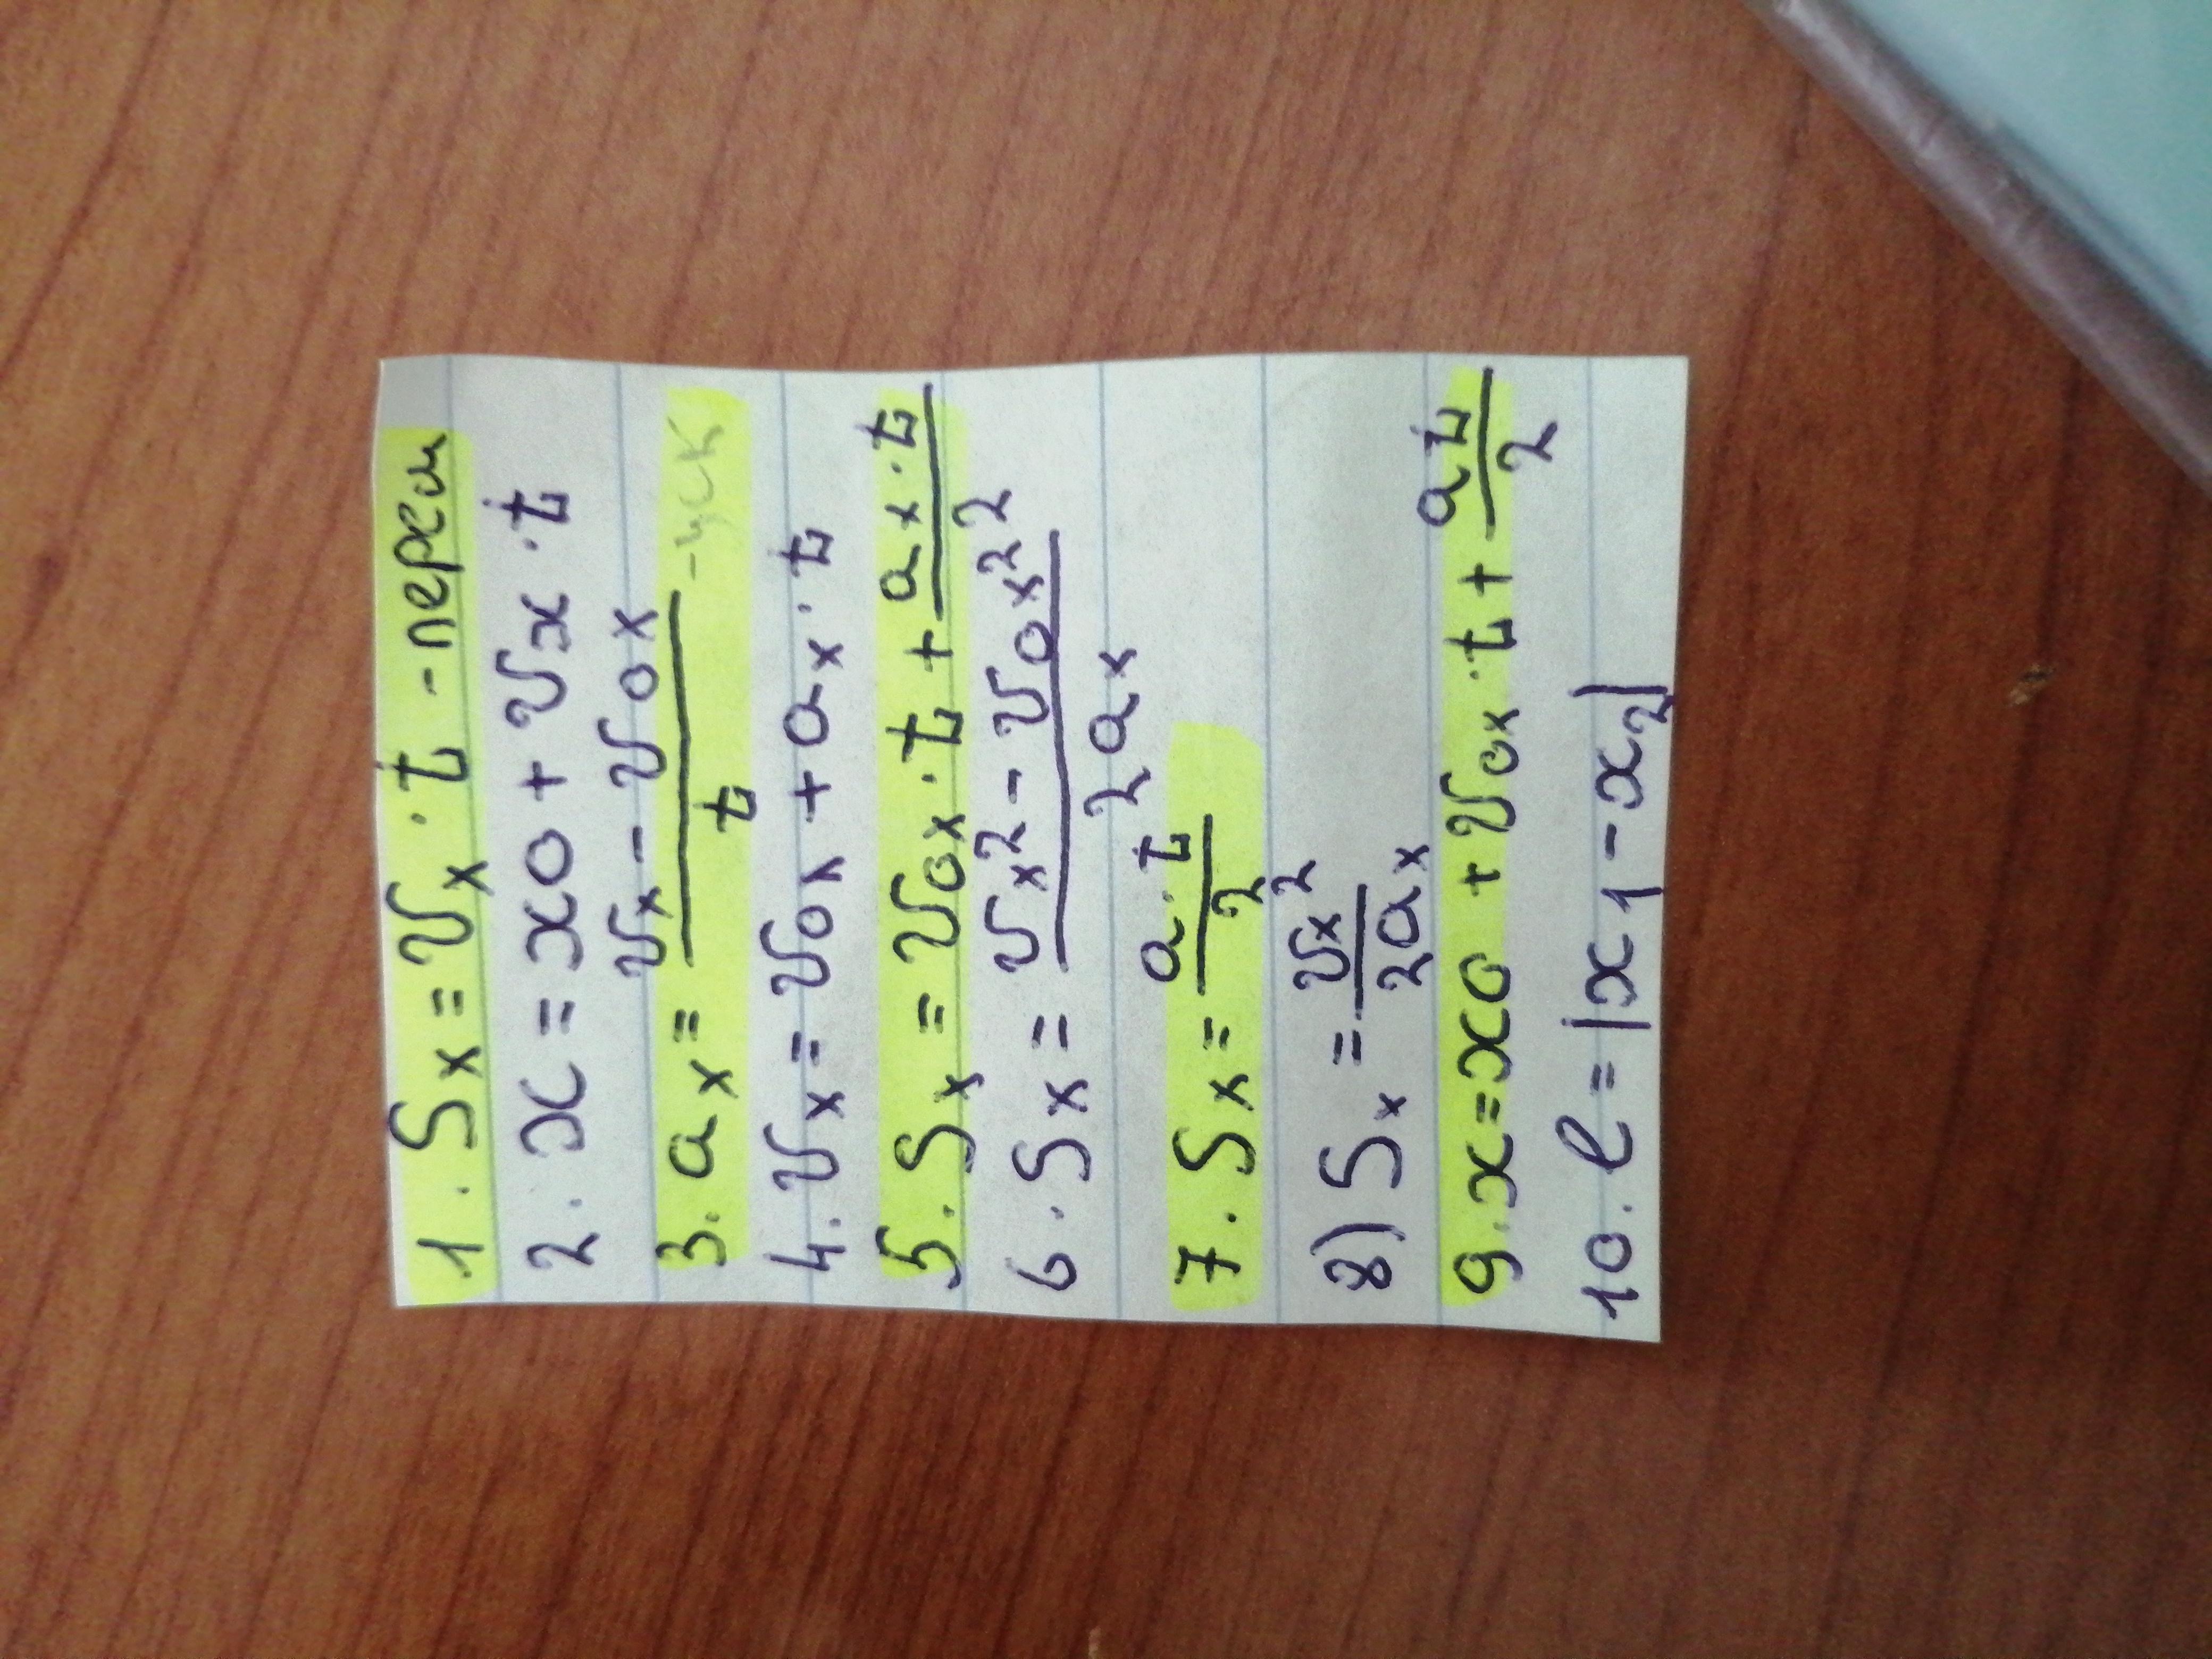 1. Sx = υx · t - перем
2. x = x0 + υx · t
3. ax = (υx - υ0x) / t - уск
4. υx = υ0x + ax · t
5. Sx = υ0x · t + (ax · t) / 2
6. Sx = (υx² - υ0x²) / 2ax
7. Sx = (a · t) / 2
8) Sx = υx² / 2ax
9. x = x0 + υ0x · t + (at) / 2
10. l = |x1 - x2|